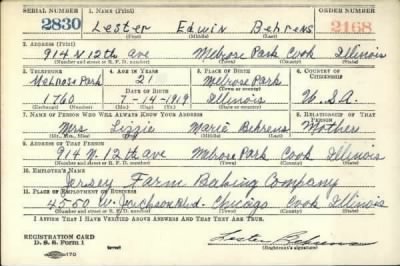 SERIAL NUMBER 1. NAME (Print) ORDER NUMBER
2830 Lester Edwin Behrens 2168
(First) (Middle) (Last)
2. ADDRESS (Print)
914 N 12th ave Melrose Park Cook Illinois
(Number and street or R. F. D. number) (Town) (County) (State)
3. TELEPHONE 4. AGE IN YEARS 5. PLACE OF BIRTH 6. COUNTRY OF CITIZENSHIP
Melrose Park 21 Melrose Park
DATE OF BIRTH (Town or county)
1760 7-14-1919 Illinois U.S.A.
(Exchange) (Number) (Mo.) (Day) (Yr.) (State or country)
7. NAME OF PERSON WHO WILL ALWAYS KNOW YOUR ADDRESS 8. RELATIONSHIP OF THAT PERSON
Mrs. Lizzie Marie Behrens Mother
(Mr., Mrs., Miss) (First) (Middle) (Last)
9. ADDRESS OF THAT PERSON
914 N. 12th ave Melrose Park Cook Illinois
(Number and street or R. F. D. number) (Town) (County) (State)
10. EMPLOYER'S NAME
Jersey Farm Baking Company
11. PLACE OF EMPLOYMENT OR BUSINESS
4550 W. Jackson Blvd. Chicago Cook Illinois
(Number and street or R. F. D. number) (Town) (County) (State)
I AFFIRM THAT I HAVE VERIFIED ABOVE ANSWERS AND THAT THEY ARE TRUE.
REGISTRATION CARD
D. S. S. Form 1 Lester Behrens
(Registrant's signature)